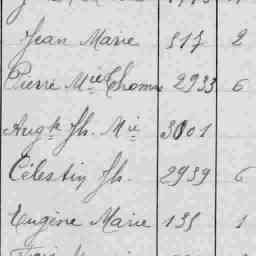 Jean Marie 317 2
Pierre Mie Thomas 2933 6
Augte Jh. Mie 3001
Célestin Jh. 2939 6
Eugène Marie 135 1